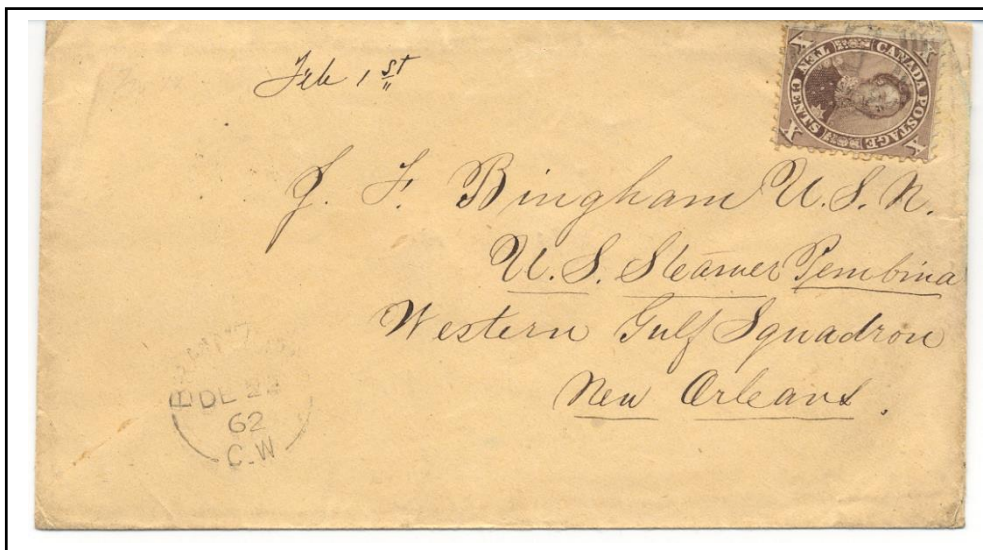 Feb 1st
CANADA POSTAGE
TEN CENTS
X X X X
J. F. Bingham U.S.N.
U.S. Steamer Pembina
Western Gulf Squadron
New Orleans.
DE 22
62
C.W